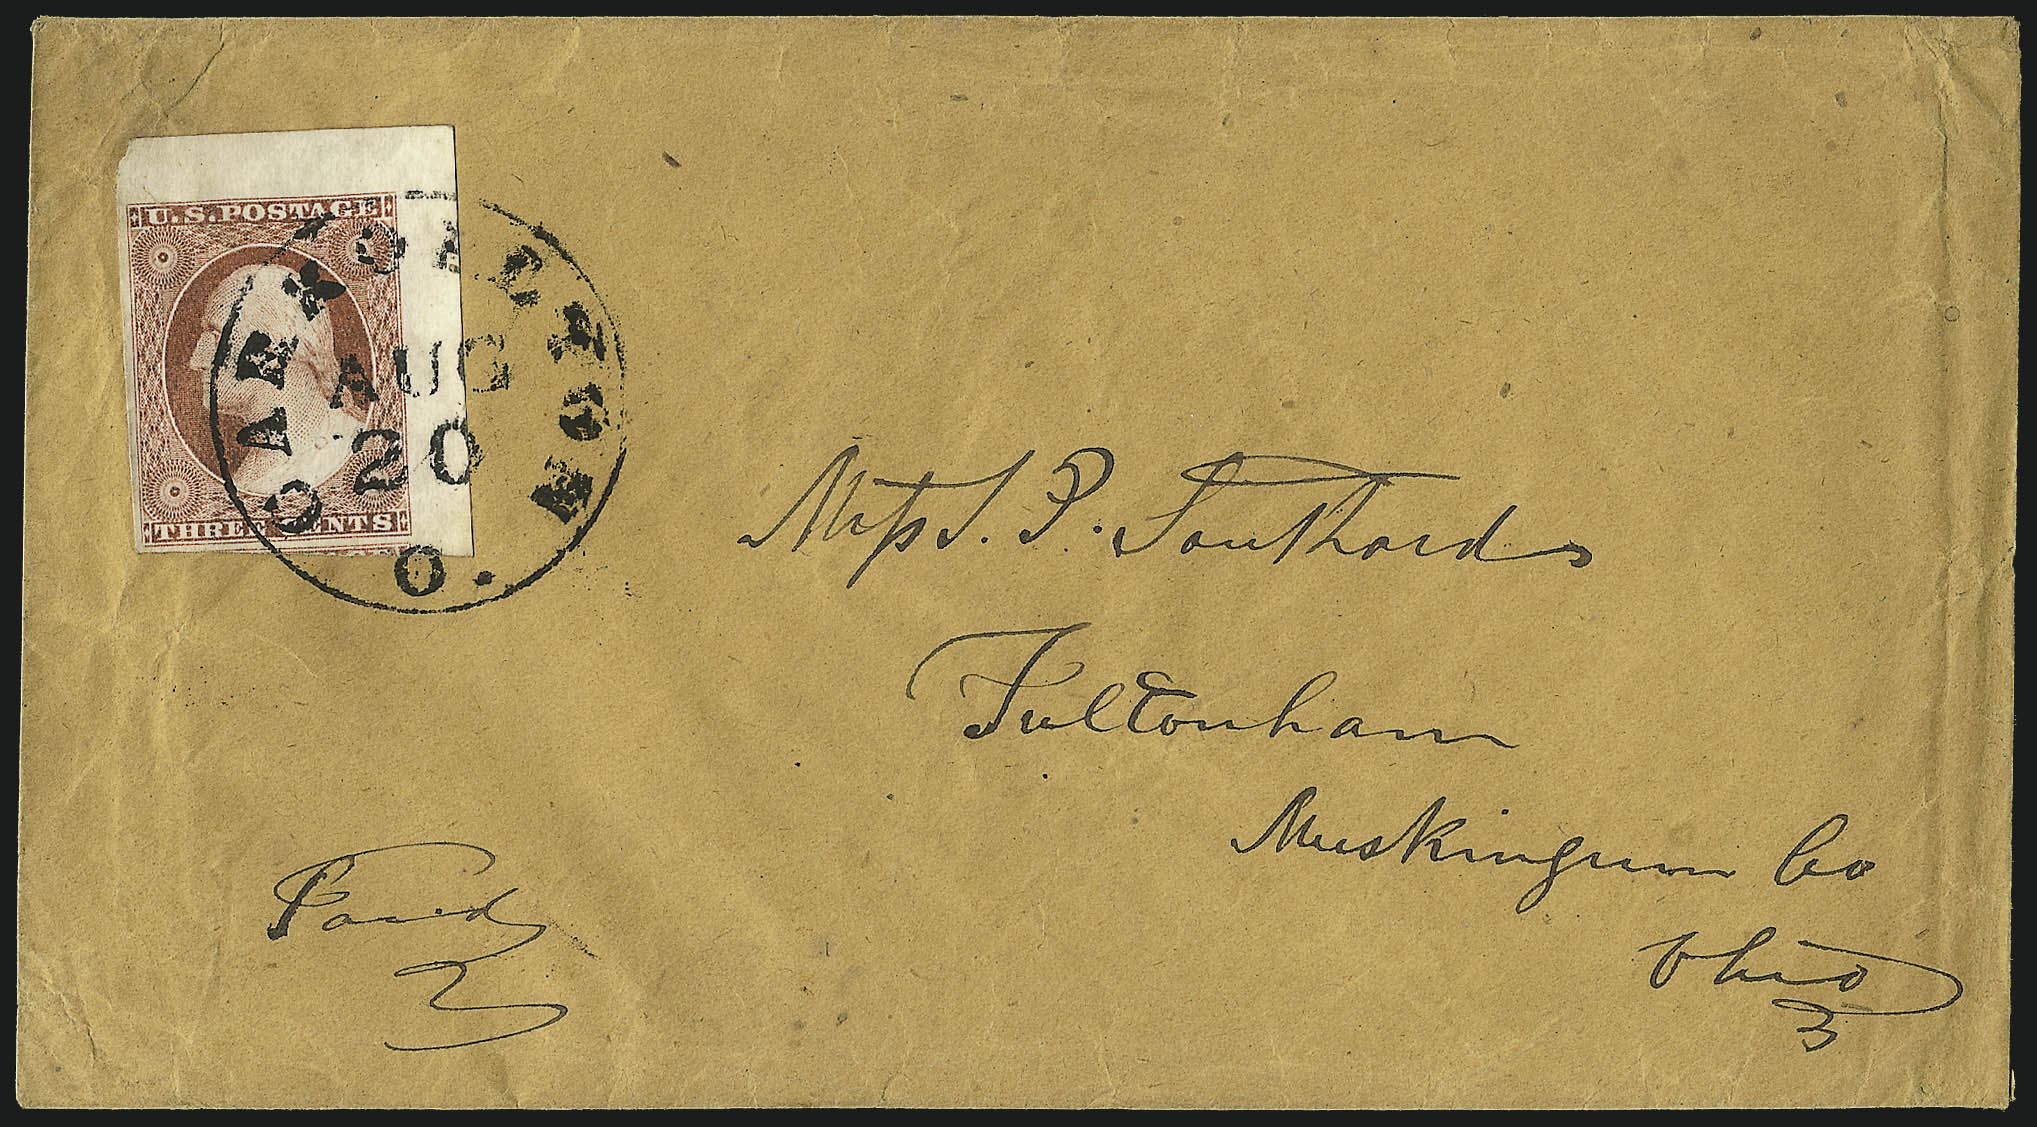 U.S.POSTAGE
THREE CENTS
CARROLLTON
AUG
20
O.
Miss S. P. Southards
Fultonham
Muskingum Co
Ohio
3
Paid
3